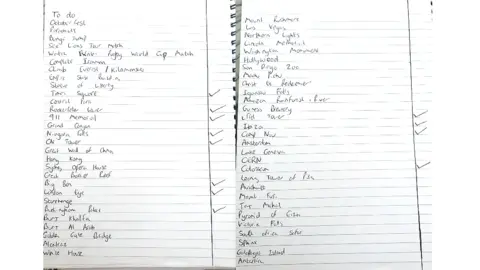 To do
Oktoberfest
Paintball
Bungi Jump
See Lions Tour Match
Watch Rugby World Cup Match
Complete Ironman
Climb Everest / Kilamanjaro
Empire State Building
Statue of Liberty
Times Square
Central Park
Rockerfeller Center
911 Memorial
Grand Canyon
Niagara Falls
CN Tower
Great Wall of China
Hong Kong
Sydney Opera House
Great Barrier Reef
Big Ben
London Eye
Stonehenge
Buckingham Palace
Burj Khalifa
Burj Al Arab
Golden Gate Bridge
Alcatraz
White House
Mount Rushmore
Las Vegas
Northern Lights
Lincoln Memorial
Washington Monument
Hollywood
San Diego Zoo
Machu Pichu
Christ the Redeemer
Iguazu Falls
Amazon Rainforest + River
Guiness Brewery
Eiffel Tower
Ibiza
Camp Nou
Amsterdam
Lake Geneva
CERN
Coloseum
Leaning Tower of Pisa
Auschwitz
Mount Fuji
Taj Mahal
Pyramid of Giza
Victoria Falls
South African Safari
Sphinx
Galapagos Island
Antarctica